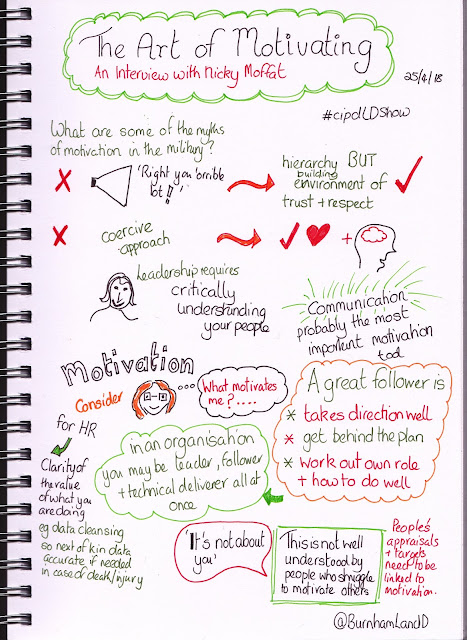 The Art of Motivating
An Interview with Nicky Moffat
25/4/18
#cipdLDShow
What are some of the myths
of motivation in the military?
'Right you 'orrible
lot!!'
hierarchy BUT
building
environment of
trust + respect
coercive
approach
+
Leadership requires
critically
understanding
your people
Communication
probably the most
important motivation
tool
Motivation
Consider
...
What motivates
me?....
for HR
Clarity of
the value
of what you
are doing
eg data cleansing
so next of kin data
accurate if needed
in case of death/injury
in an organisation
you may be leader, follower
+ technical deliverer all at
once
A great follower is
* takes direction well
* get behind the plan
* work out own role
+ how to do well
'It's not about
you'
This is not well
understood by
people who struggle
to motivate others
People's
appraisals
+ targets
need to be
linked to
motivation.
@BurnhamLandD